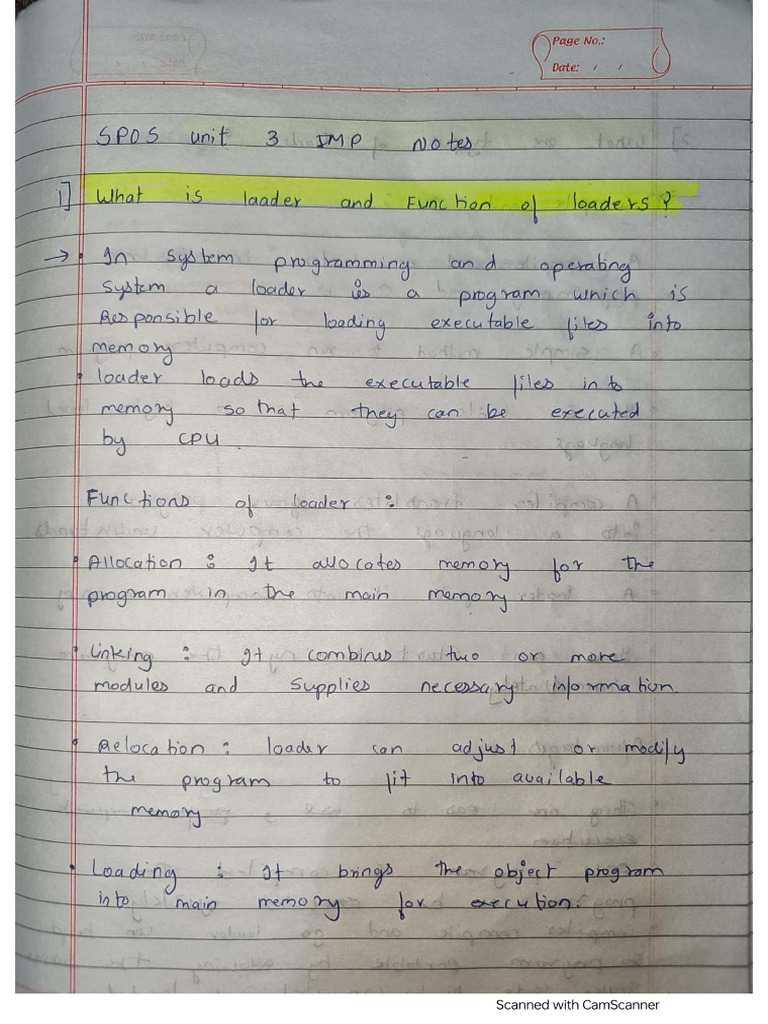 Page No.:
Date: / /
SPOS unit 3 IMP Notes
1] What is loader and Function of loaders?
→ • In system programming and operating
system a loader is a program which is
Responsible for loading executable files into
memory
• loader loads the executable files in to
memory so that they can be executed
by CPU.
Functions of loader :
• Allocation : It allocates memory for the
program in the main memory
• Linking : It combines two or more
modules and supplies necessary information.
• Relocation : loader can adjust or modify
the program to fit into available
memory
• Loading : It brings the object program
into main memory for execution.
Scanned with CamScanner